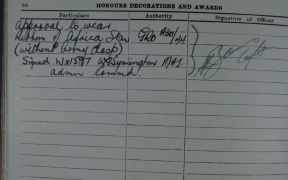 56 HONOURS DECORATIONS AND AWARDS
Particulars Authority Signature of Officer
approval to wear
ribbon of Africa Star A30/44
(without army clasp)
Signed WX1597 W Symington Maj.
admin command.